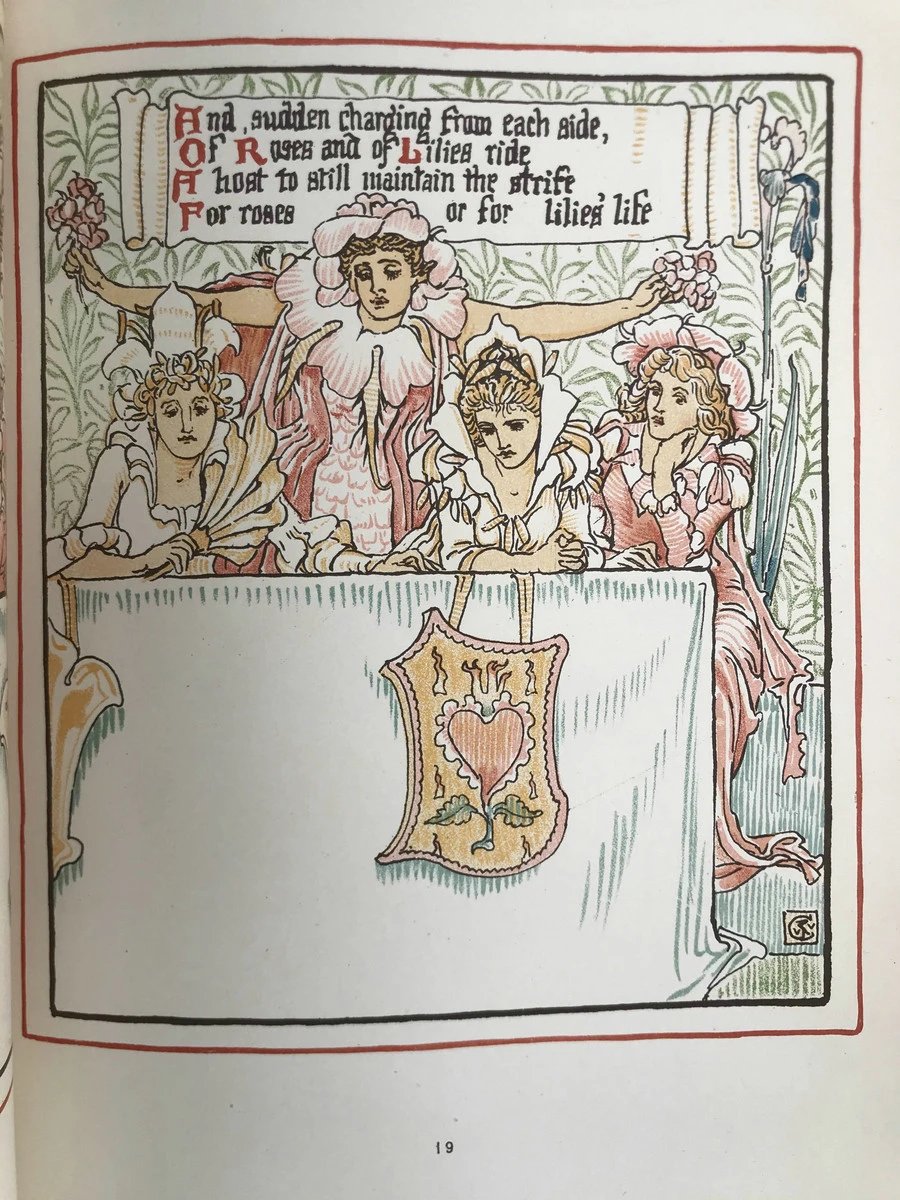 And, sudden charging from each side,
Of Roses and of Lilies ride
A host to still maintain the strife
For roses or for lilies' life
19